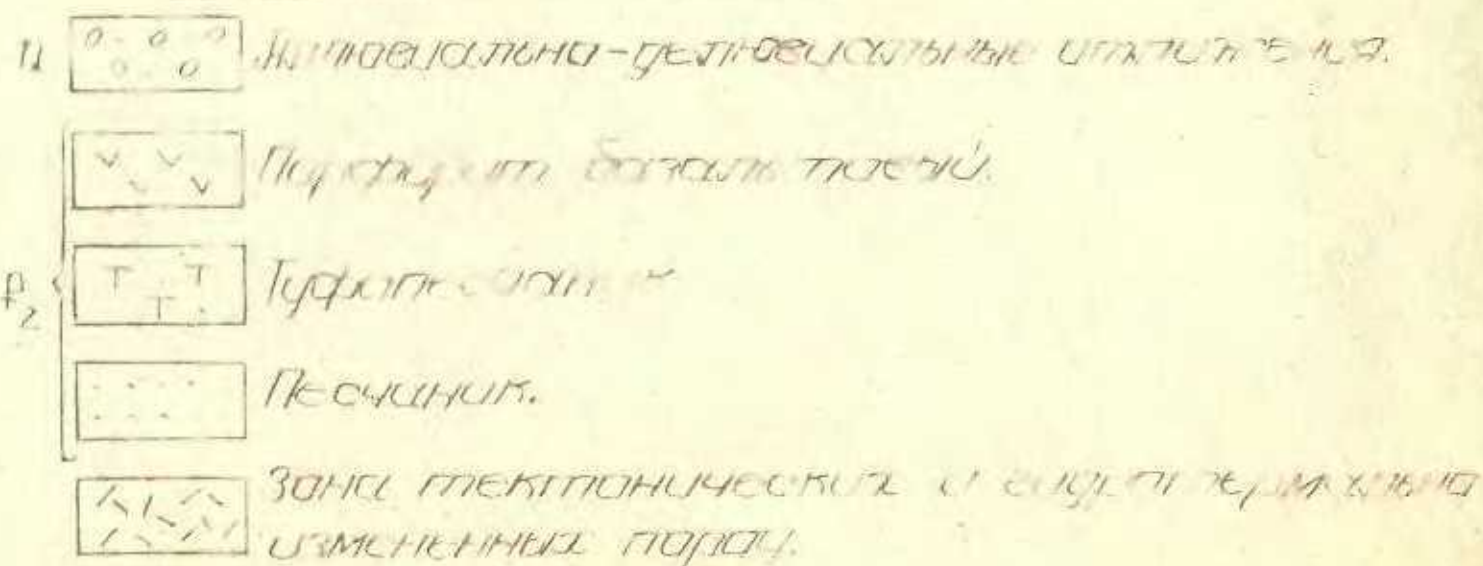 Аллювиально-делювиальные отложения.
Порфирит базальтовый.
Туфопесчаник
P2
Песчаник.
Зона тектонических и гидротермально
измененных пород.